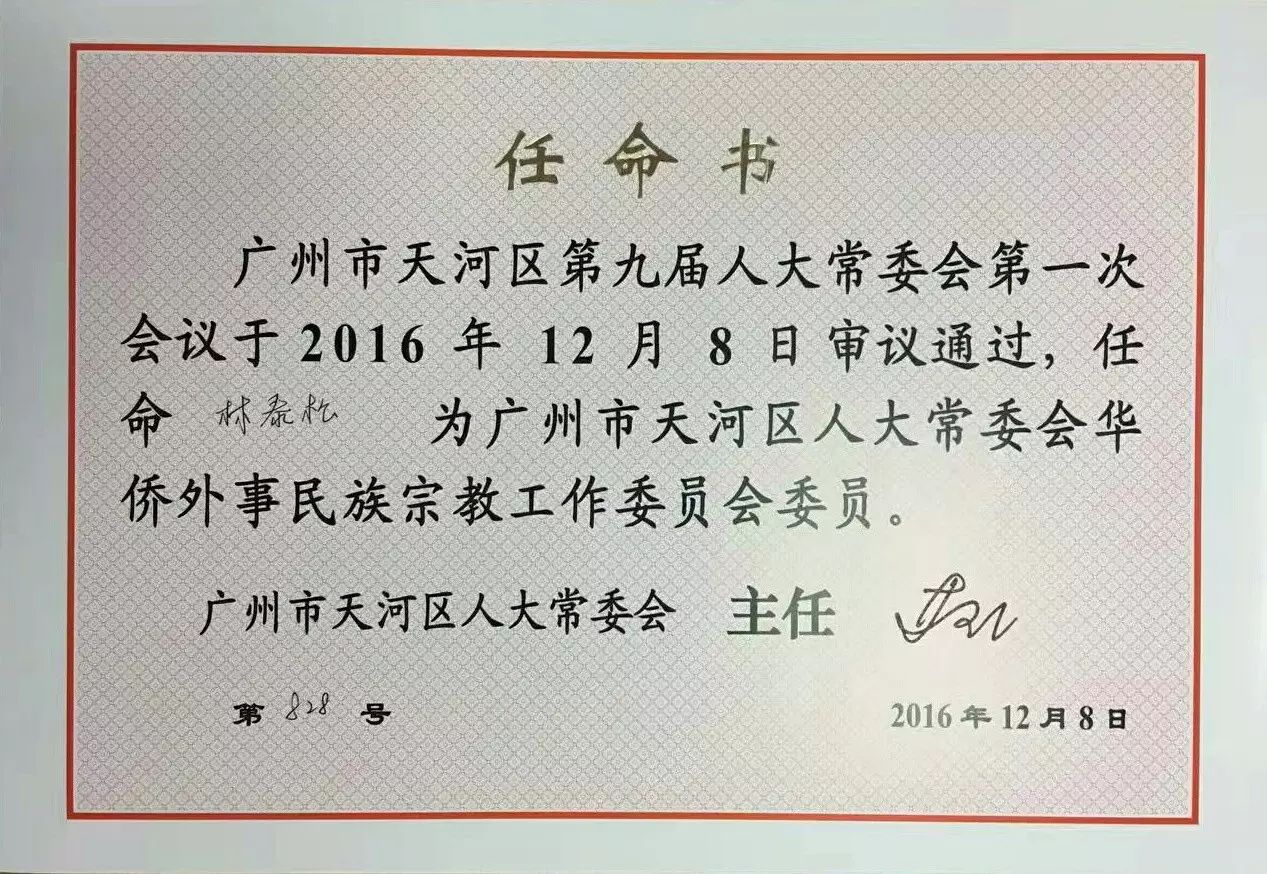 任命书
广州市天河区第九届人大常委会第一次
会议于2016 年 12 月 8 日审议通过，任
命 林泰松 为广州市天河区人大常委会华
侨外事民族宗教工作委员会委员。
广州市天河区人大常委会 主任
第 828 号 2016年12月8日